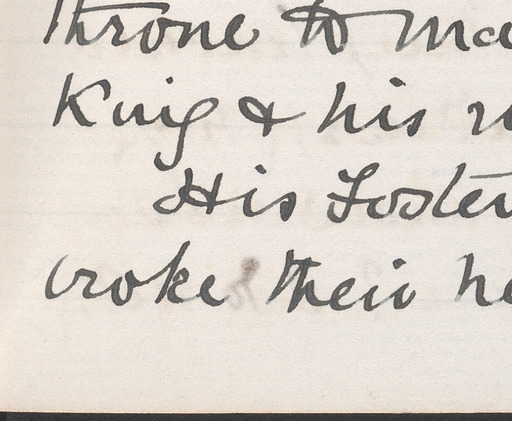 throne to ma
King & his r
His Foster
broke their he